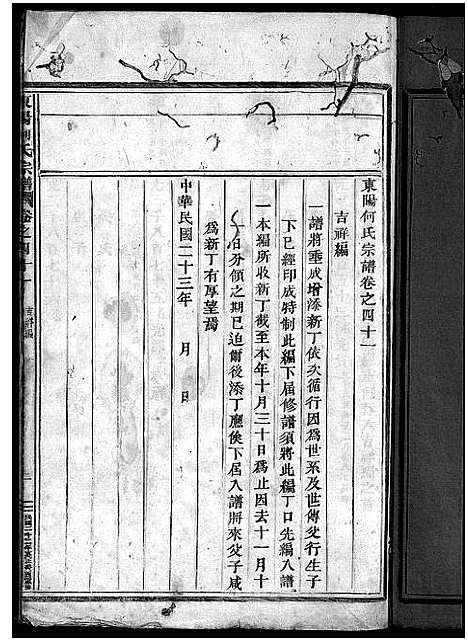 東陽何氏宗譜卷之四十一
吉祥編
一譜將垂成增添新丁依次循行因為世系及世傳父行生子
下已經印成特制此編下屆修譜須將此編丁口先編入譜
一本編所收新丁截至本年十月三十日為止因去十一月十
一日分領之期已迫爾後添丁應俟下屆入譜將來父子咸
為新丁有厚望焉
中華民國二十三年　月　日
東陽何氏宗譜
卷之四十一
吉祥編